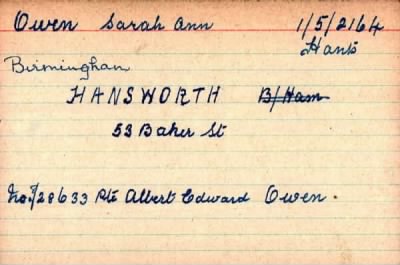 Owen Sarah Ann 1/5/2164
Hants
Birmingham
HANSWORTH B/Ham
53 Baker St
No. 7/28633 Pte Albert Edward Owen.